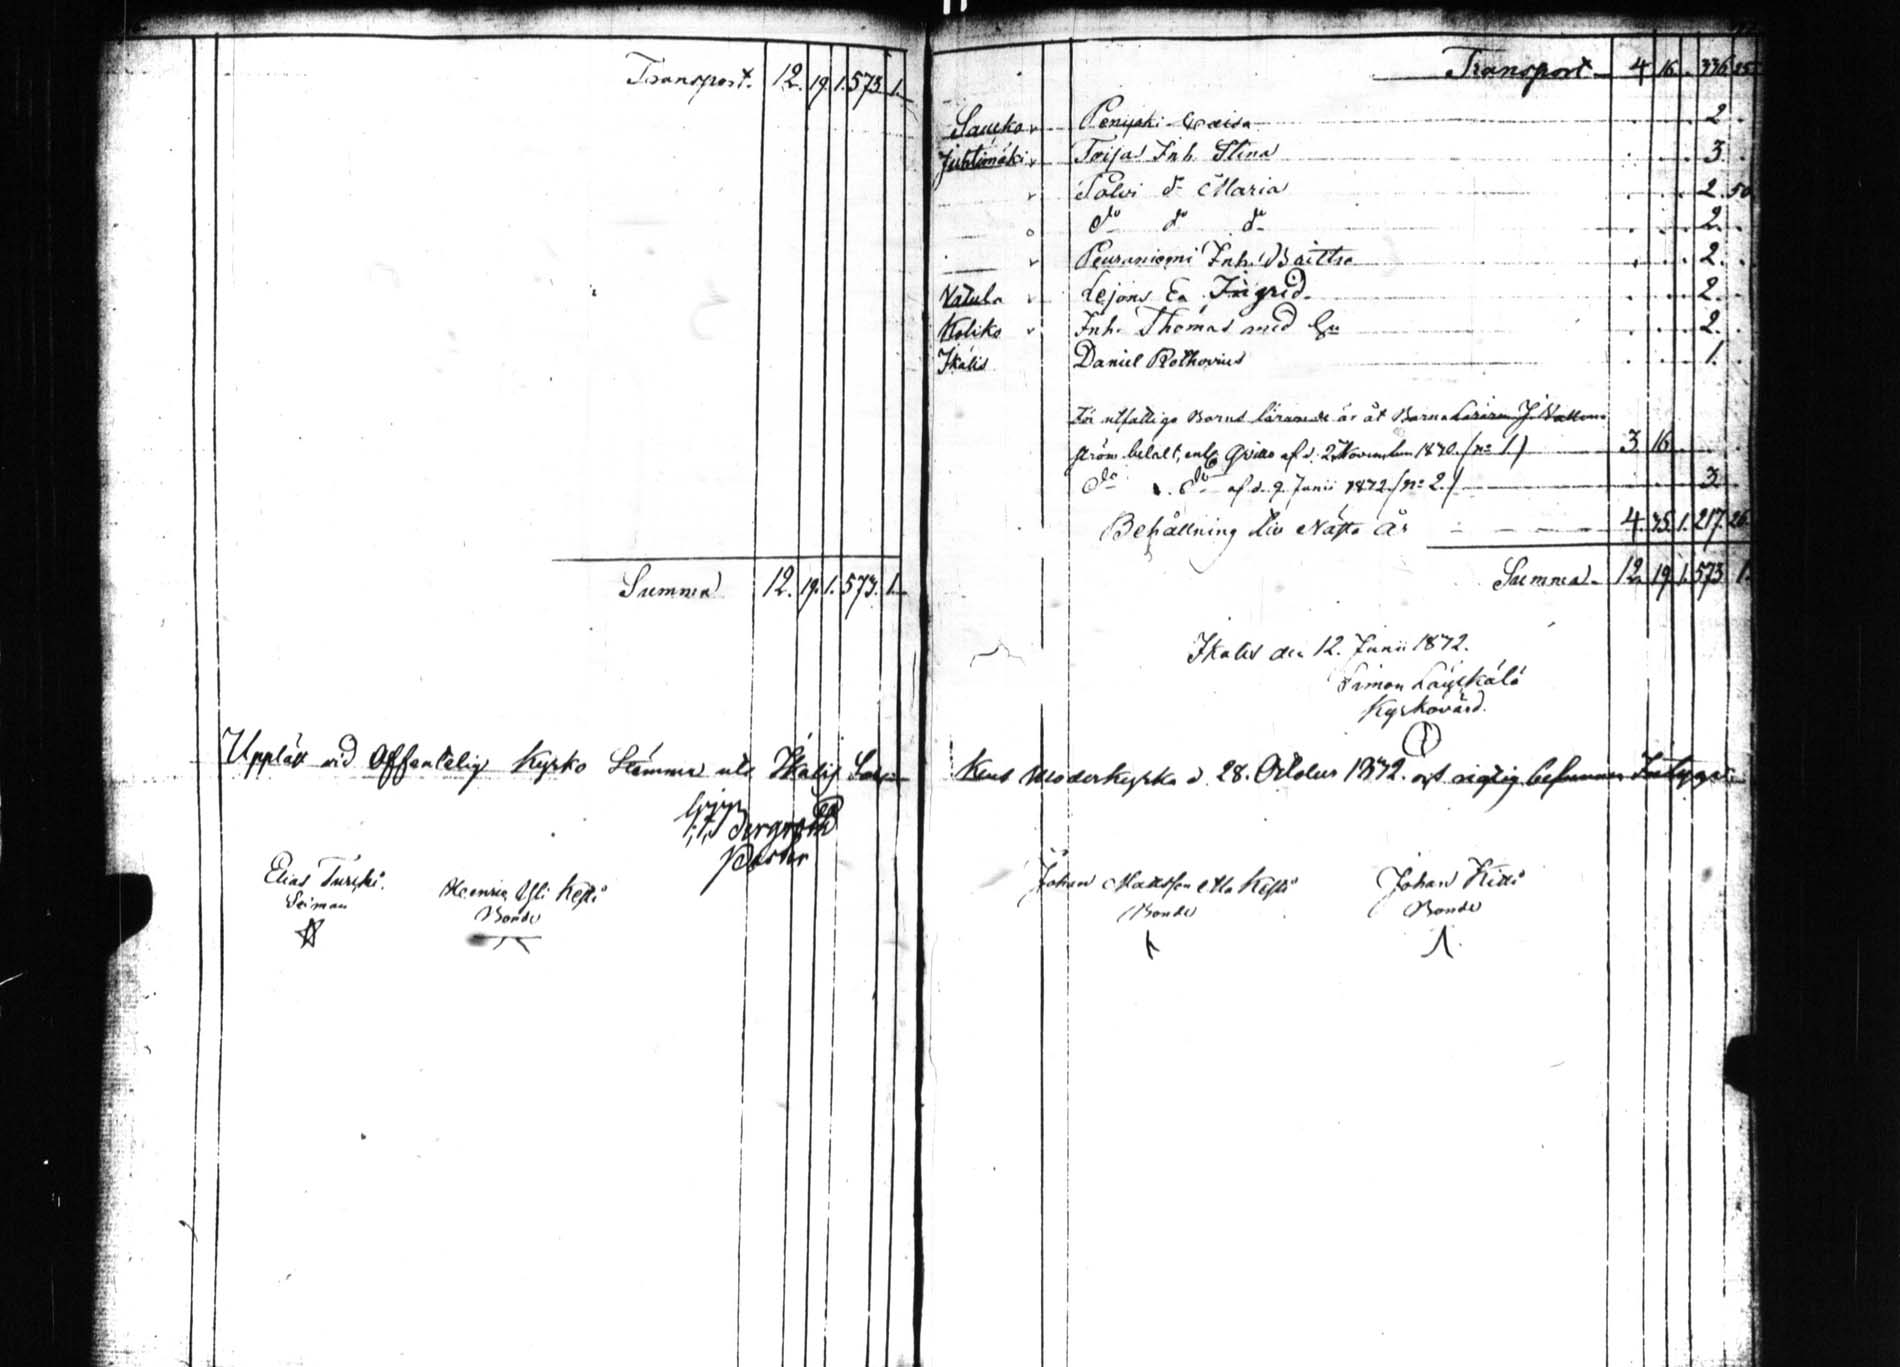 Transport. 12. 19. 1. 573. 1.
Summa 12. 19. 1. 573. 1.
Uppläst vid Offentelig Kyrko Stämma uti Ikalis
Bergroth
Pastor
Elias Turcki.
Henric Yli Kesti
Bonde
Transport 4 16 . 336 25
2
Juhtimäki Inh. Stina 3
dº Maria 2. 50
dº dº dº 2.
Peuraniemi Inh. 2.
Vatula Lejons Ea Ingrid 2.
Koliko Inh. Thomas med 2.
Ikalis Daniel Rothovius 1.
För utfattiga Barns lärande är åt Barna Läraren
ström betalt, enl. Qvitto af d. 2 November 1870. (nº 1) 3 16
dº dº af d. 9. Junii 1872. (nº 2.) 3
Behållning till Nästa År 4. 75. 1. 217. 26
Summa 12. 19. 1. 573 1.
Ikalis den 12. Junii 1872.
Simon
Kyrkovärd.
Moderkyrka d. 28. October 1872. och rigtig befunnen
Johan Mattsson Kesti
Bonde
Johan Kitti
Bonde